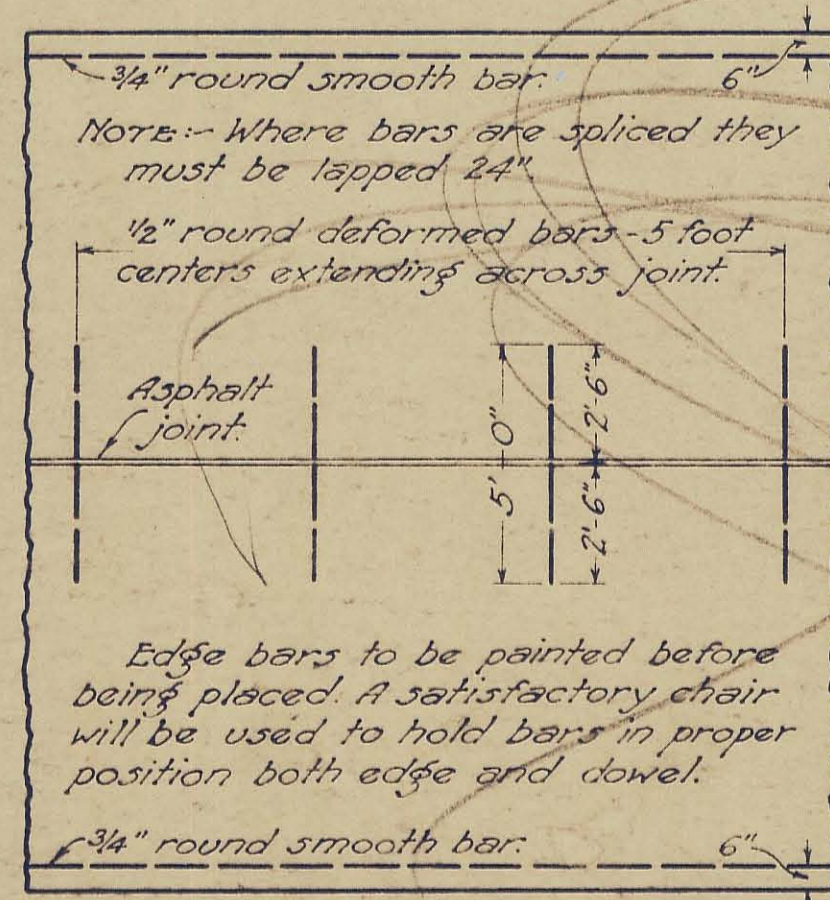 3/4" round smooth bar. 6"
NOTE:- Where bars are spliced they
must be lapped 24".
1/2" round deformed bars - 5 foot
centers extending across joint.
Asphalt
joint.
5'-0"
2'-6"
2'-6"
Edge bars to be painted before
being placed. A satisfactory chair
will be used to hold bars in proper
position both edge and dowel.
3/4" round smooth bar. 6"